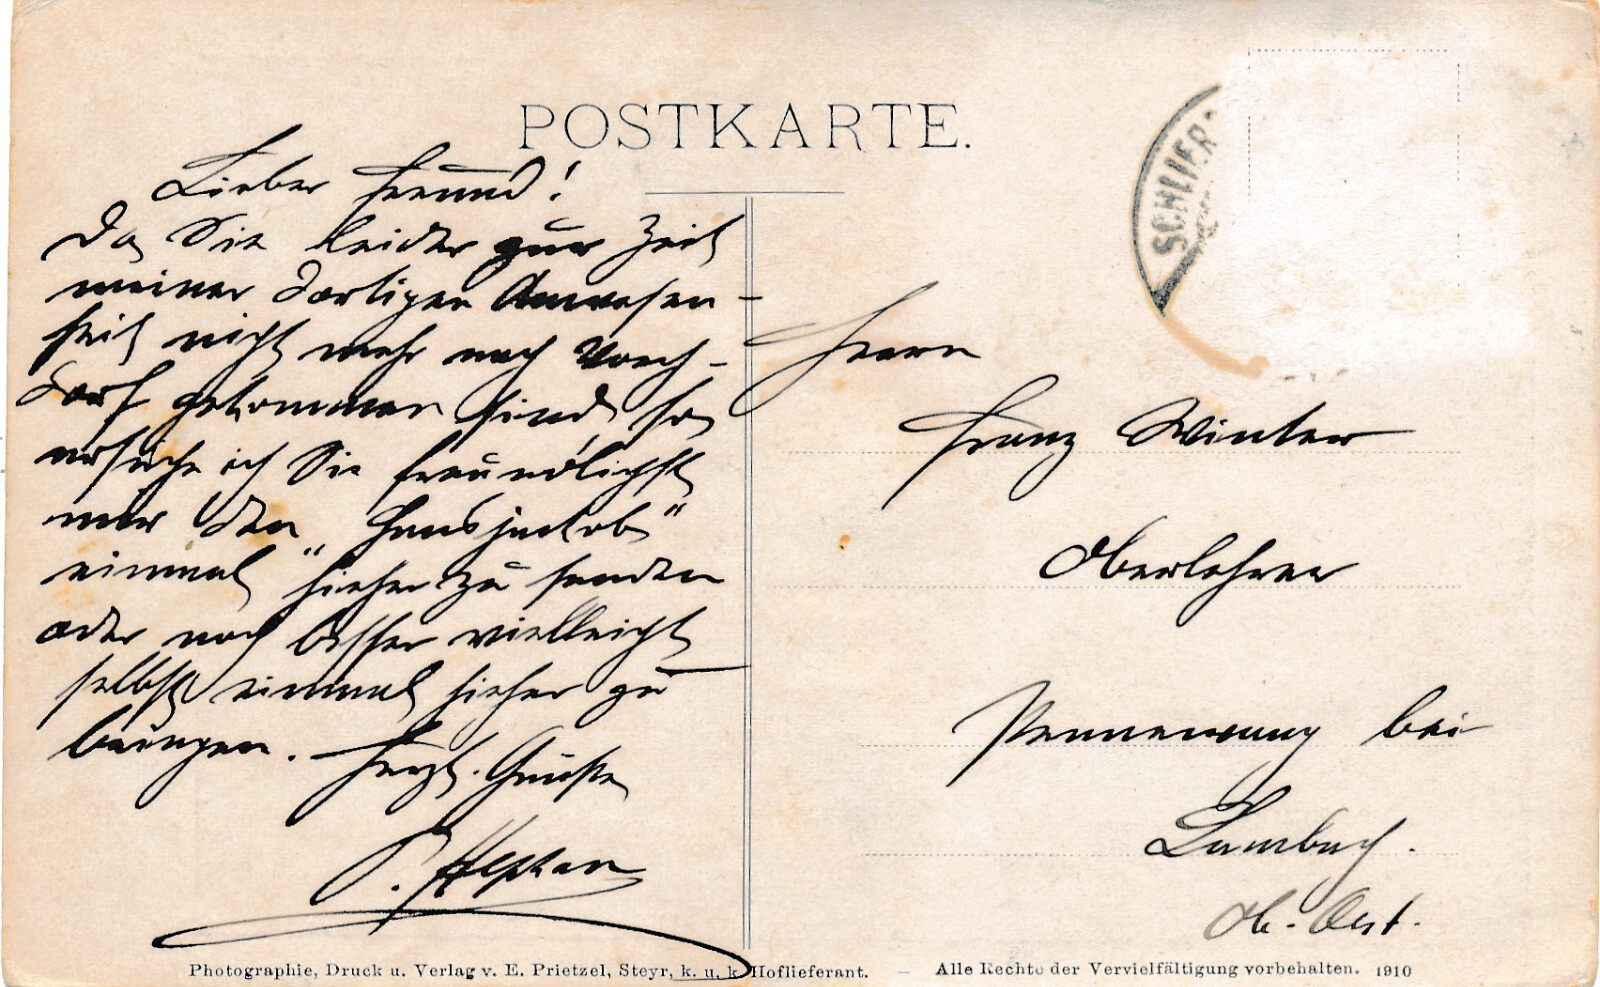 POSTKARTE.
SCHLIER
Lieber Freund!
Da Sie leider zur Zeit
meiner dortigen Anwesen-
heit nicht mehr nach Vorch-
dorf gekommen sind, so
ersuche ich Sie freundlichst
mir den
einmal hieher zu senden
oder noch besser vielleicht
selbst einmal hieher zu
bringen. Herzl. Grüße
P.
Herrn
Franz Winter
Oberlehrer
Pennewang bei
Lambach.
Ob.-Öst.
Photographie, Druck u. Verlag v. E. Prietzel, Steyr, k. u. k. Hoflieferant. — Alle Rechte der Vervielfältigung vorbehalten. 1910